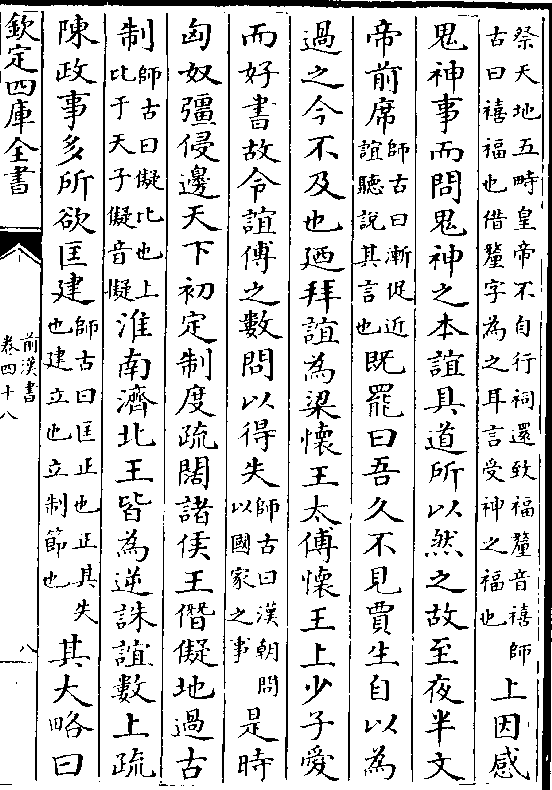 祭天地五畤皇帝不自行祠還致福釐音禧師
古曰禧福也借釐字為之耳言受神之福也上因感
鬼神事而問鬼神之本誼具道所以然之故至夜半文
帝前席師古曰漸促近
誼聽說其言也既罷曰吾久不見賈生自以為
過之今不及也廼拜誼為梁懷王太傅懷王上少子愛
而好書故令誼傅之數問以得失師古曰漢朝問
以國家之事是時
匈奴彊侵邊天下初定制度疏闊諸侯王僭儗地過古
制師古曰儗比也上
比于天子儗音擬淮南濟北王皆為逆誅誼數上疏
陳政事多所欲匡建師古曰匡正也正其失
也建立也立制節也其大略曰
欽定四庫全書
前漢書
卷四十八
八